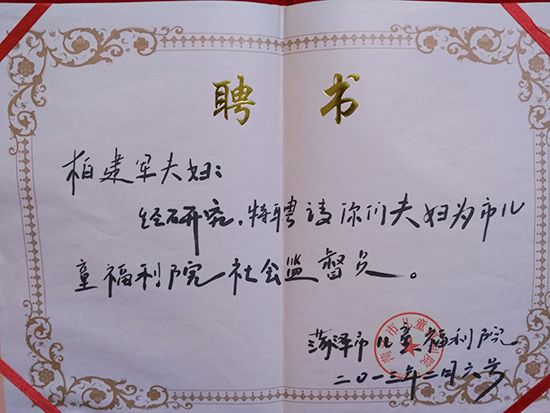 聘 书
柏建军夫妇：
经研究，特聘请你们夫妇为市儿
童福利院社会监督员。
菏泽市儿童福利院
二〇一三年二月六号